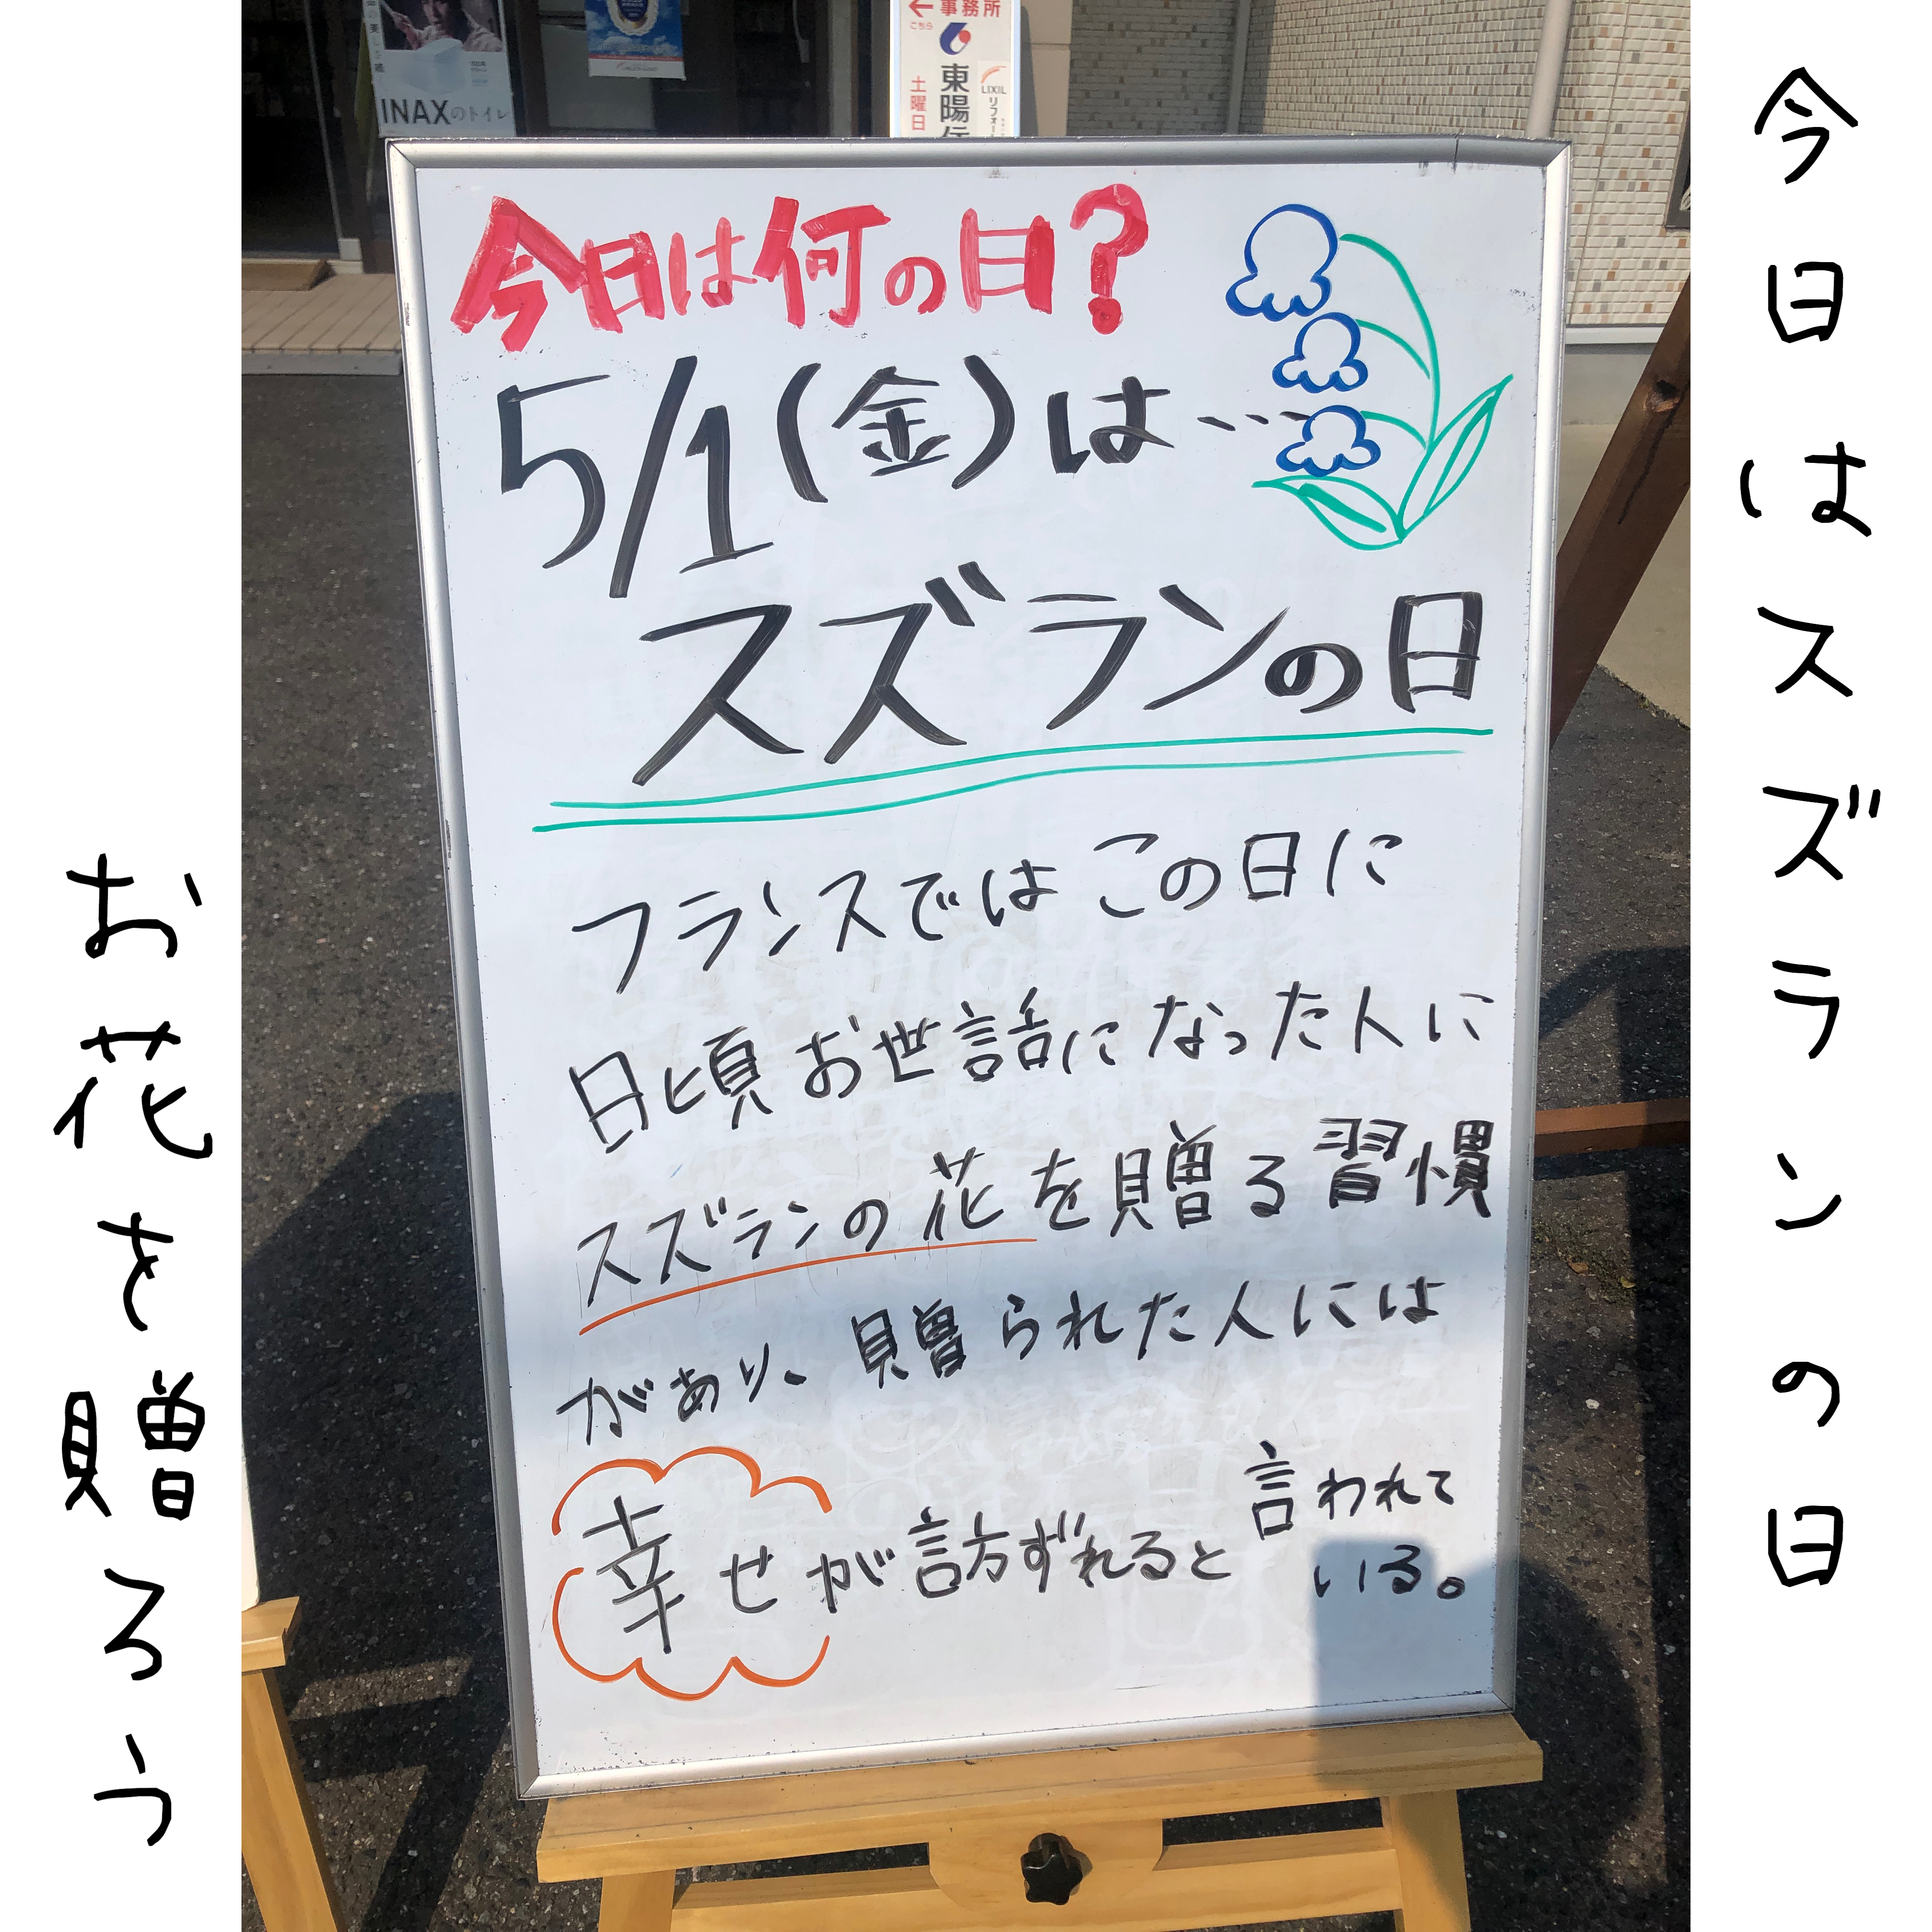 今日はスズランの日
お花を贈ろう
INAXのトイレ
←事務所
こちら
東陽
土曜日
LIXIL
リフォー
今日は何の日?
5/1(金)は…
スズランの日
フランスではこの日に
日頃お世話になった人に
スズランの花を贈る習慣
があり、贈られた人には
幸せが訪ずれると言われて
いる。